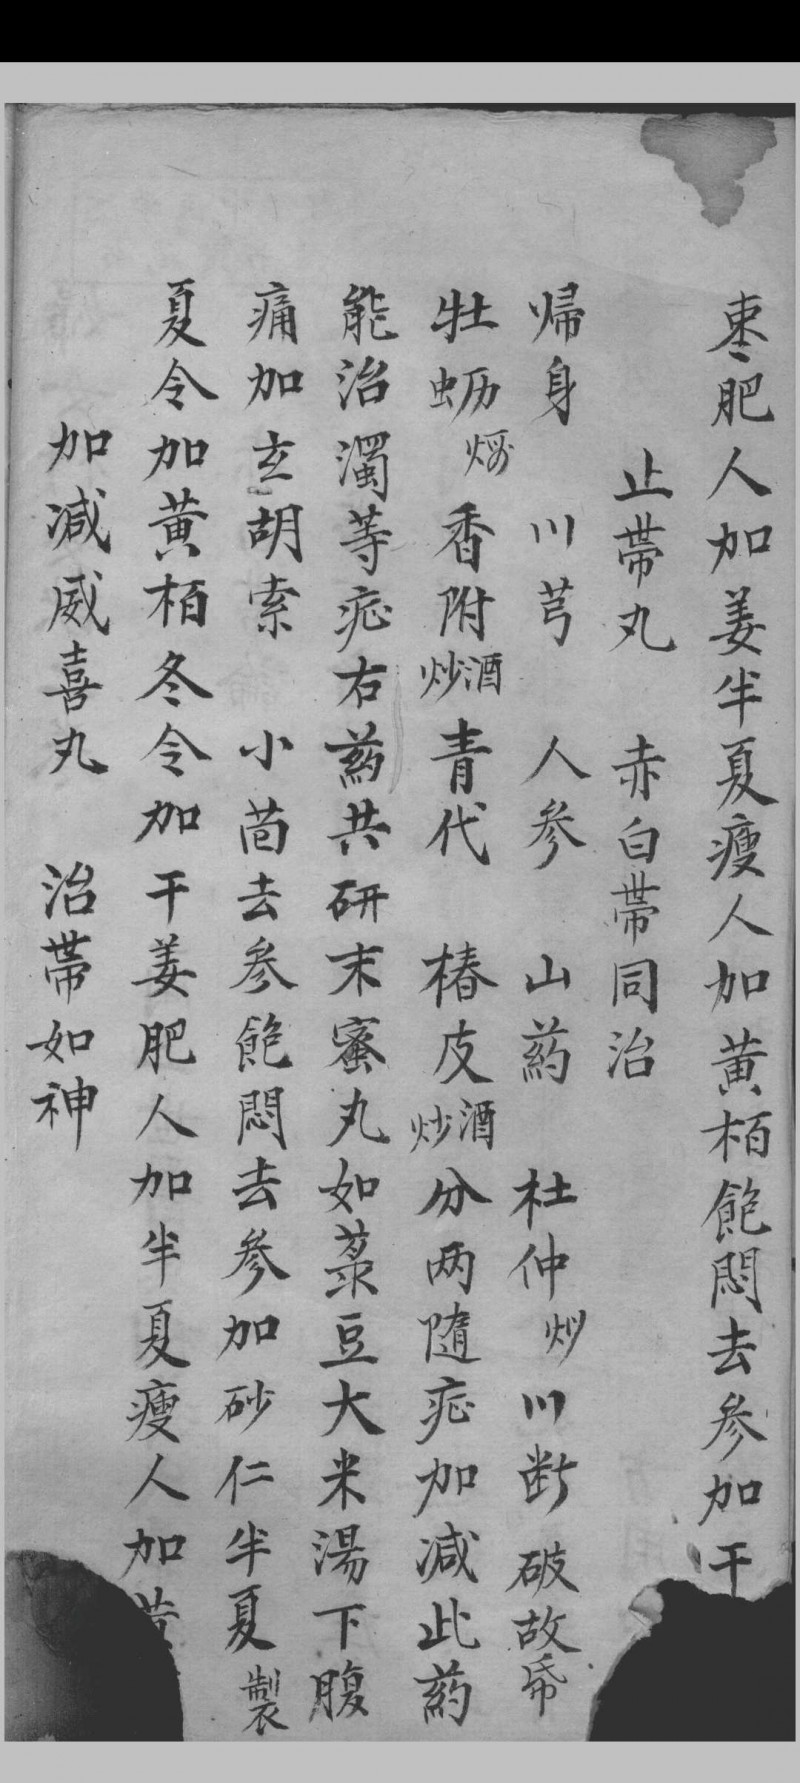 枣肥人加姜半夏瘦人加黄栢飽悶去參加干
止帯丸　赤白帯同治
帰身　川芎　人參　山葯　杜仲炒　川断　破故帋
牡蛎煅　香附酒炒　青代　椿皮酒炒　分两隨症加减此葯
能治濁等症右葯共研末蜜丸如菉豆大米湯下腹
痛加玄胡索　小茴去參飽悶去參加砂仁半夏製
夏令加黄栢冬令加干姜肥人加半夏瘦人加黄
加减威喜丸　治帯如神